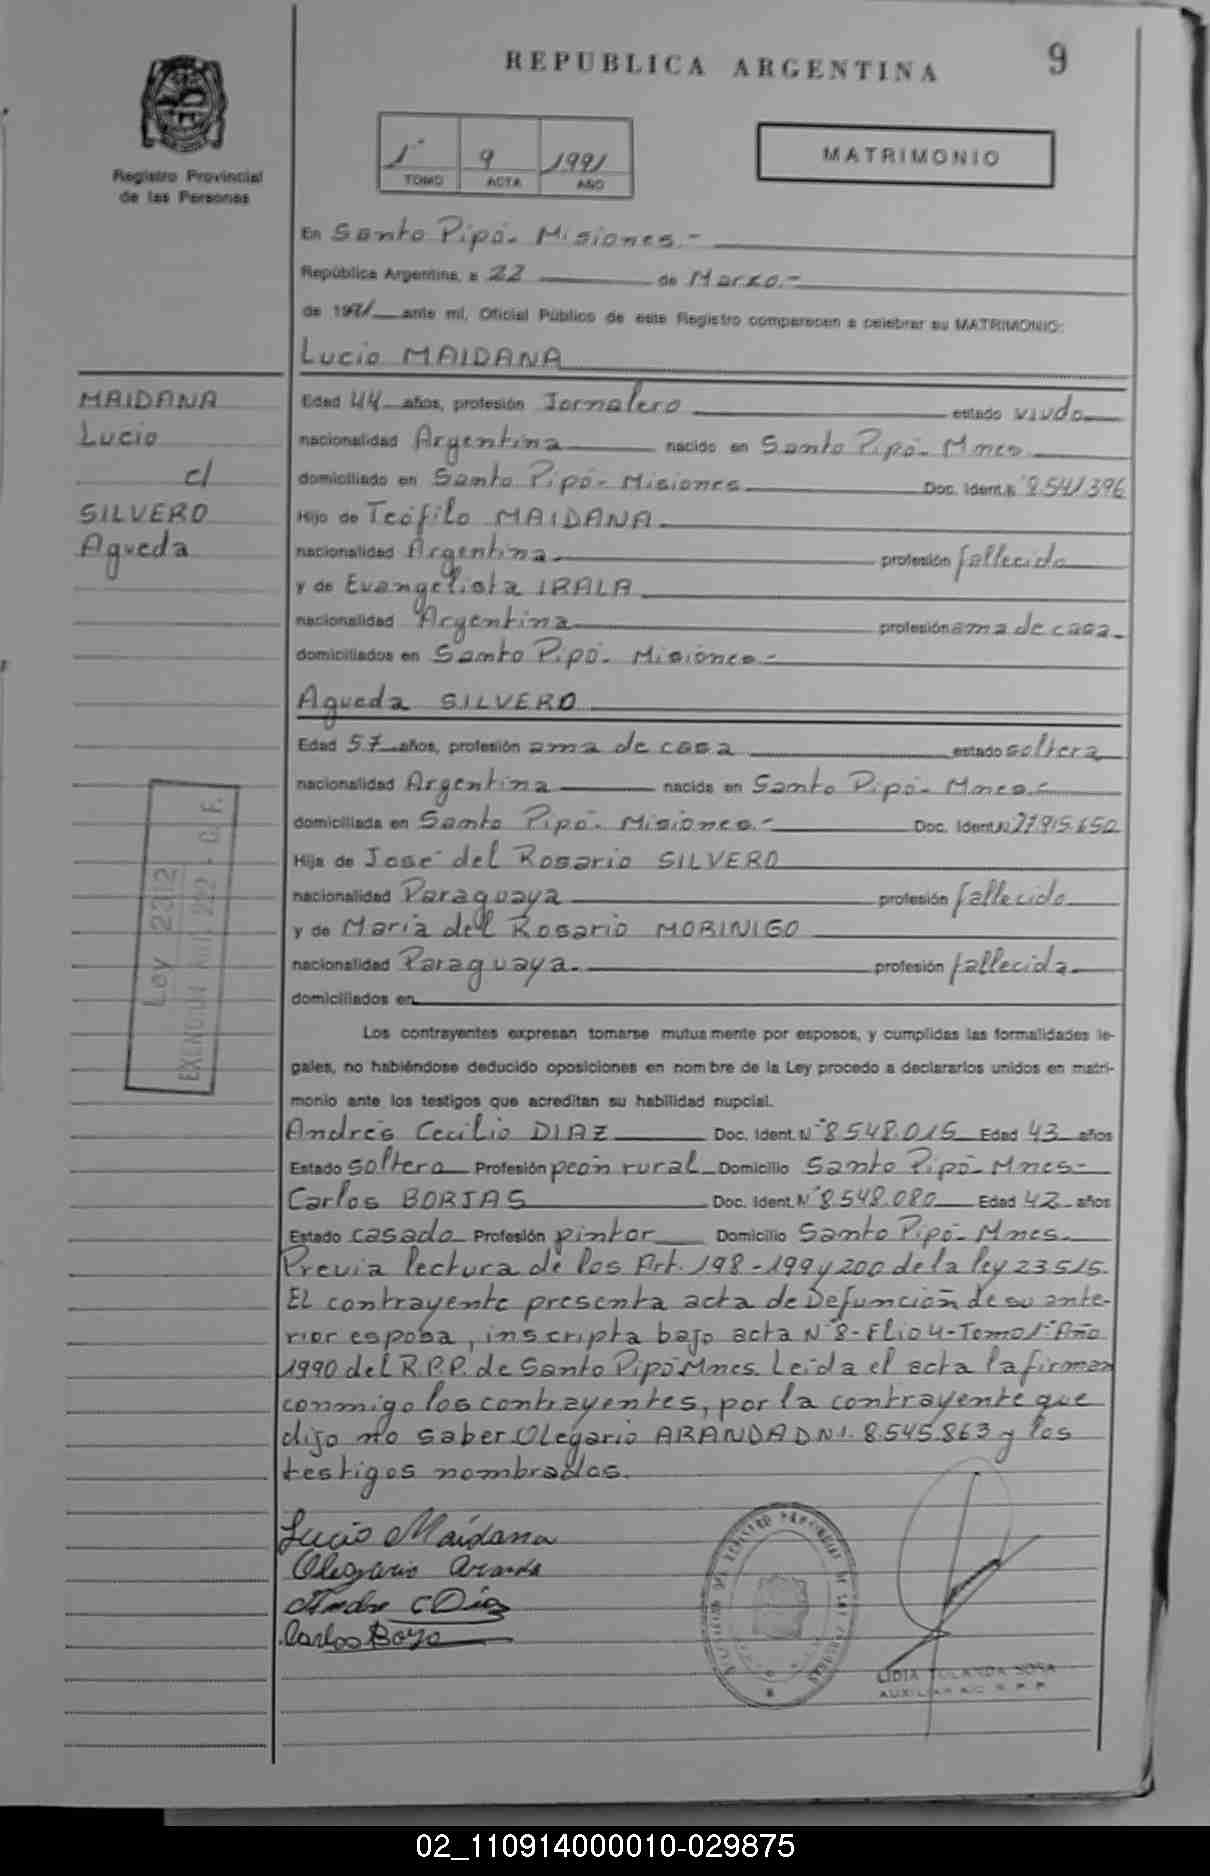 REPUBLICA ARGENTINA
9
Registro Provincial
de las Personas
1° 9 1991
TOMO ACTA AÑO
MATRIMONIO
En Santo Pipó- Misiones.-
República Argentina, a 22 de Marzo.-
de 1991 ante mí, Oficial Público de este Registro comparecen a celebrar su MATRIMONIO:
Lucio MAIDANA
MAIDANA
Lucio
c/
SILVERO
Agueda
Edad 44 años, profesión Jornalero estado viudo
nacionalidad Argentina nacido en Santo Pipó- Mnes
domiciliado en Santo Pipó- Misiones Doc. Ident. N° 8.541.396
Hijo de Teófilo MAIDANA
nacionalidad Argentina profesión fallecido
y de Evangelista IRALA
nacionalidad Argentina profesión ama de casa.
domiciliados en Santo Pipó- Misiones-
Agueda SILVERO
Edad 57 años, profesión ama de casa estado soltera
nacionalidad Argentina nacida en Santo Pipó- Mnes.-
domiciliada en Santo Pipó- Misiones.- Doc. Ident. N° 27.915.652
Hija de José del Rosario SILVERO
nacionalidad Paraguaya profesión fallecido
y de Maria del Rosario MORINIGO
nacionalidad Paraguaya. profesión fallecida
domiciliados en
Ley 2312
EXENCION Art. 222 - C. F.
Los contrayentes expresan tomarse mutuamente por esposos, y cumplidas las formalidades le-
gales, no habiéndose deducido oposiciones en nombre de la Ley procedo a declararlos unidos en matri-
monio ante los testigos que acreditan su habilidad nupcial.
Andrés Cecilio DIAZ Doc. Ident. N° 8.548.015 Edad 43 años
Estado soltero Profesión peón rural Domicilio Santo Pipó- Mnes-
Carlos BORJAS Doc. Ident. N° 8.548.080 Edad 42 años
Estado casado Profesión pintor Domicilio Santo Pipó- Mnes.
Previa lectura de los Art. 198-199 y 200 de la ley 23515.
El contrayente presenta acta de Defunción de su ante-
rior esposa, inscripta bajo acta N° 8-Flio 4-Tomo 1° Año
1990 del R.P.P. de Santo Pipó Mnes. Leída el acta la firman
conmigo los contrayentes, por la contrayente que
dijo no saber Olegario ARANDA DNI. 8.545.863 y los
testigos nombrados.
Lucio Maidana
Olegario Aranda
Andre C Diaz
Carlos Borja
LIDIA YOLANDA SOSA
02_110914000010-029875